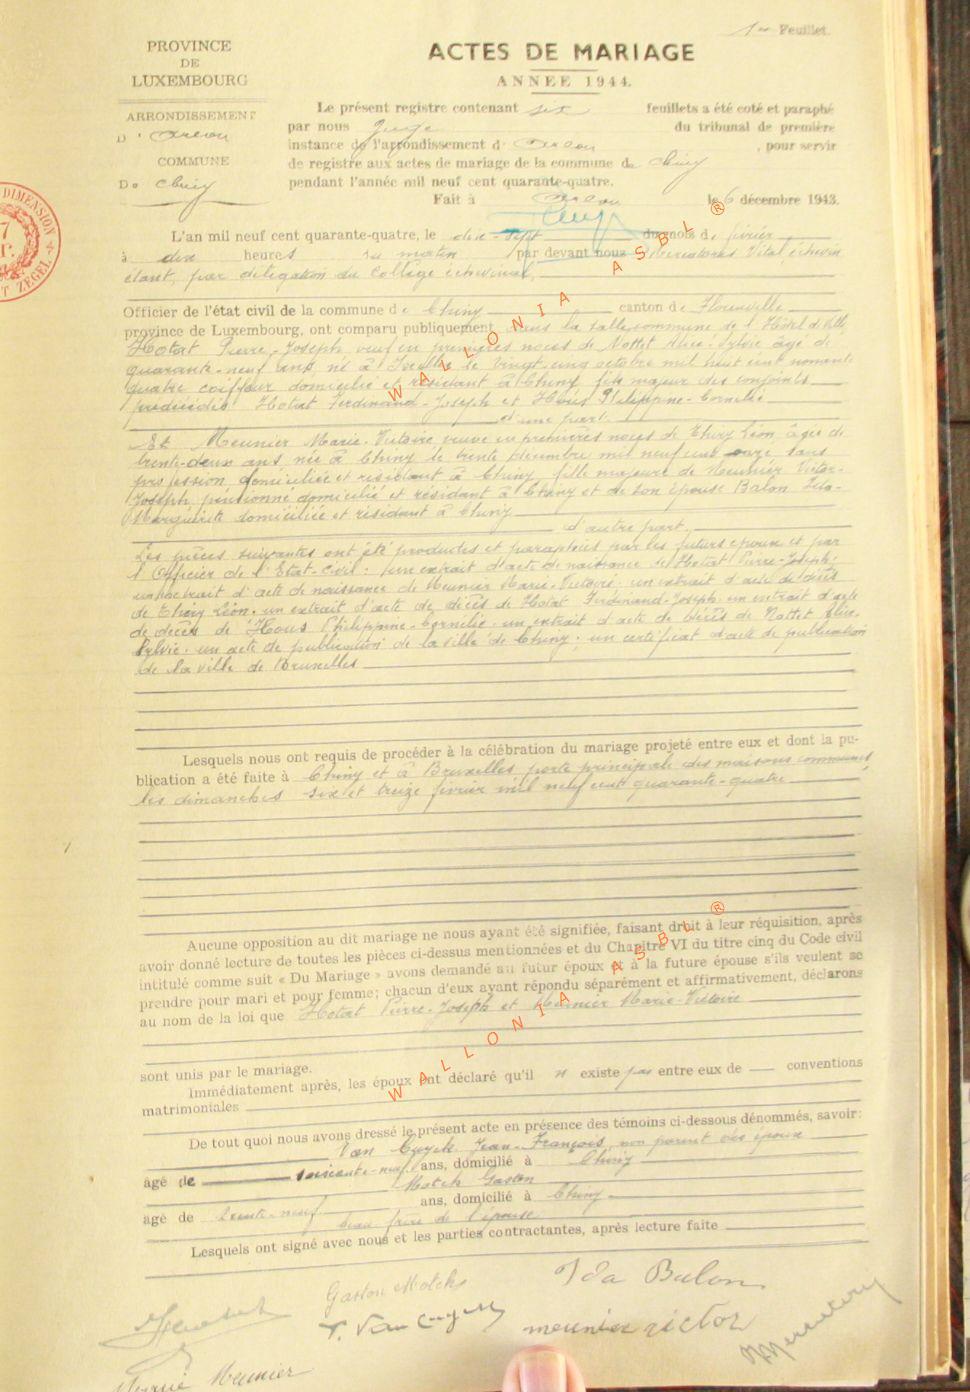 1er Feuillet.
PROVINCE
DE
LUXEMBOURG
ACTES DE MARIAGE
ANNEE 1944.
ARRONDISSEMENT
D'Arlon
COMMUNE
De Chiny
Le présent registre contenant six feuillets a été coté et paraphé
par nous Juge du tribunal de première
instance de l'arrondissement d'Arlon, pour servir
de registre aux actes de mariage de la commune de Chiny
pendant l'année mil neuf cent quarante-quatre.
Fait à Arlon le 6 décembre 1943.
DIMENSION
ZEGEL
L'an mil neuf cent quarante-quatre, le dix-sept du mois de février
à dix heures du matin par devant nous Vital, échevin
étant, par délégation du Collège échevinal,
Officier de l'état civil de la commune de Chiny canton de Florenville
province de Luxembourg, ont comparu publiquement dans la salle commune de l'Hôtel de Ville
Hotat Pierre-Joseph veuf en premières noces de Nottet Alice-Sylvie âgé de
quarante-neuf ans né à Ixelles le vingt-cinq octobre mil huit cent nonante
quatre coiffeur domicilié et résidant à Chiny fils majeur des conjoints
prédécédés Hotat Ferdinand-Joseph et Hous Philippine-Cornélie
d'une part.
Et Meunier Marie-Victoire veuve en premières noces de Thiry Léon, âgée de
trente-deux ans née à Chiny le trente décembre mil neuf cent onze sans
profession domiciliée et résidant à Chiny fille majeure de Meunier Victor-
Joseph pensionné domicilié et résidant à Chiny et de son épouse Balon Ida-
Marguerite domiciliée et résidant à Chiny
d'autre part.
Les pièces suivantes ont été produites et paraphées par les futurs époux et par
l'Officier de l'Etat-Civil: un extrait d'acte de naissance de Hotat Pierre-Joseph.
un extrait d'acte de naissance de Meunier Marie-Victoire. un extrait d'acte de décès
de Thiry Léon. un extrait d'acte de décès de Hotat Ferdinand-Joseph. un extrait d'acte
de décès de Hous Philippine-Cornélie. un extrait d'acte de décès de Nottet Alice-
Sylvie. un acte de publication de la ville de Chiny; un certificat d'acte de publication
de la ville de Bruxelles
Lesquels nous ont requis de procéder à la célébration du mariage projeté entre eux et dont la pu-
blication a été faite à Chiny et à Bruxelles porte principale des maisons communes
les dimanches six et treize février mil neuf cent quarante-quatre
Aucune opposition au dit mariage ne nous ayant été signifiée, faisant droit à leur réquisition, après
avoir donné lecture de toutes les pièces ci-dessus mentionnées et du Chapitre VI du titre cinq du Code civil
intitulé comme suit « Du Mariage » avons demandé au futur époux et à la future épouse s'ils veulent se
prendre pour mari et pour femme; chacun d'eux ayant répondu séparément et affirmativement, déclarons
au nom de la loi que Hotat Pierre-Joseph et Meunier Marie-Victoire
sont unis par le mariage.
Immédiatement après, les époux ont déclaré qu'il n'existe pas entre eux de conventions
matrimoniales
De tout quoi nous avons dressé le présent acte en présence des témoins ci-dessous dénommés, savoir:
Van Cuyck Jean-François, non parent des époux
âgé de soixante-neuf ans, domicilié à Chiny
Motch Gaston
âgé de trente-neuf ans, domicilié à Chiny
beau frère de l'épouse
Lesquels ont signé avec nous et les parties contractantes, après lecture faite
Gaston Motch
Ida Balon
meunier victor
Meunier
WALLONIA ASBL ®
WALLONIA ASBL ®